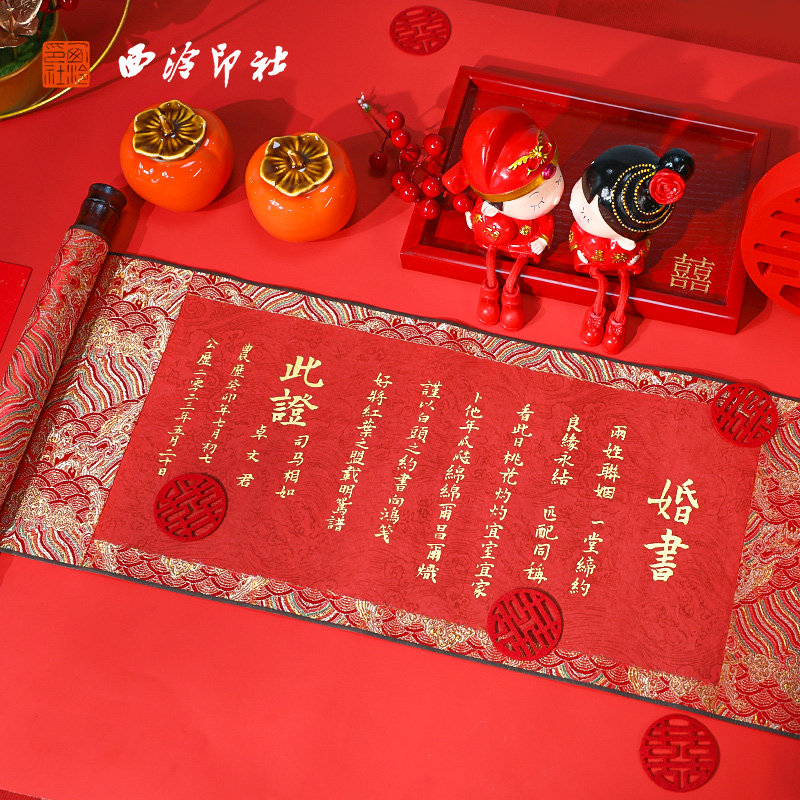 西泠印社
西泠印社
囍
囍
囍
囍
婚書
兩姓聯姻 一堂締約
良緣永結 匹配同稱
看此日桃花灼灼宜室宜家
卜他年瓜瓞綿綿爾昌爾熾
謹以白頭之約書向鴻箋
好將紅葉之盟載明鴛譜
此證
司马相如
卓文君
農曆癸卯年七月初七
公曆二〇二三年五月二十日
囍
囍
囍